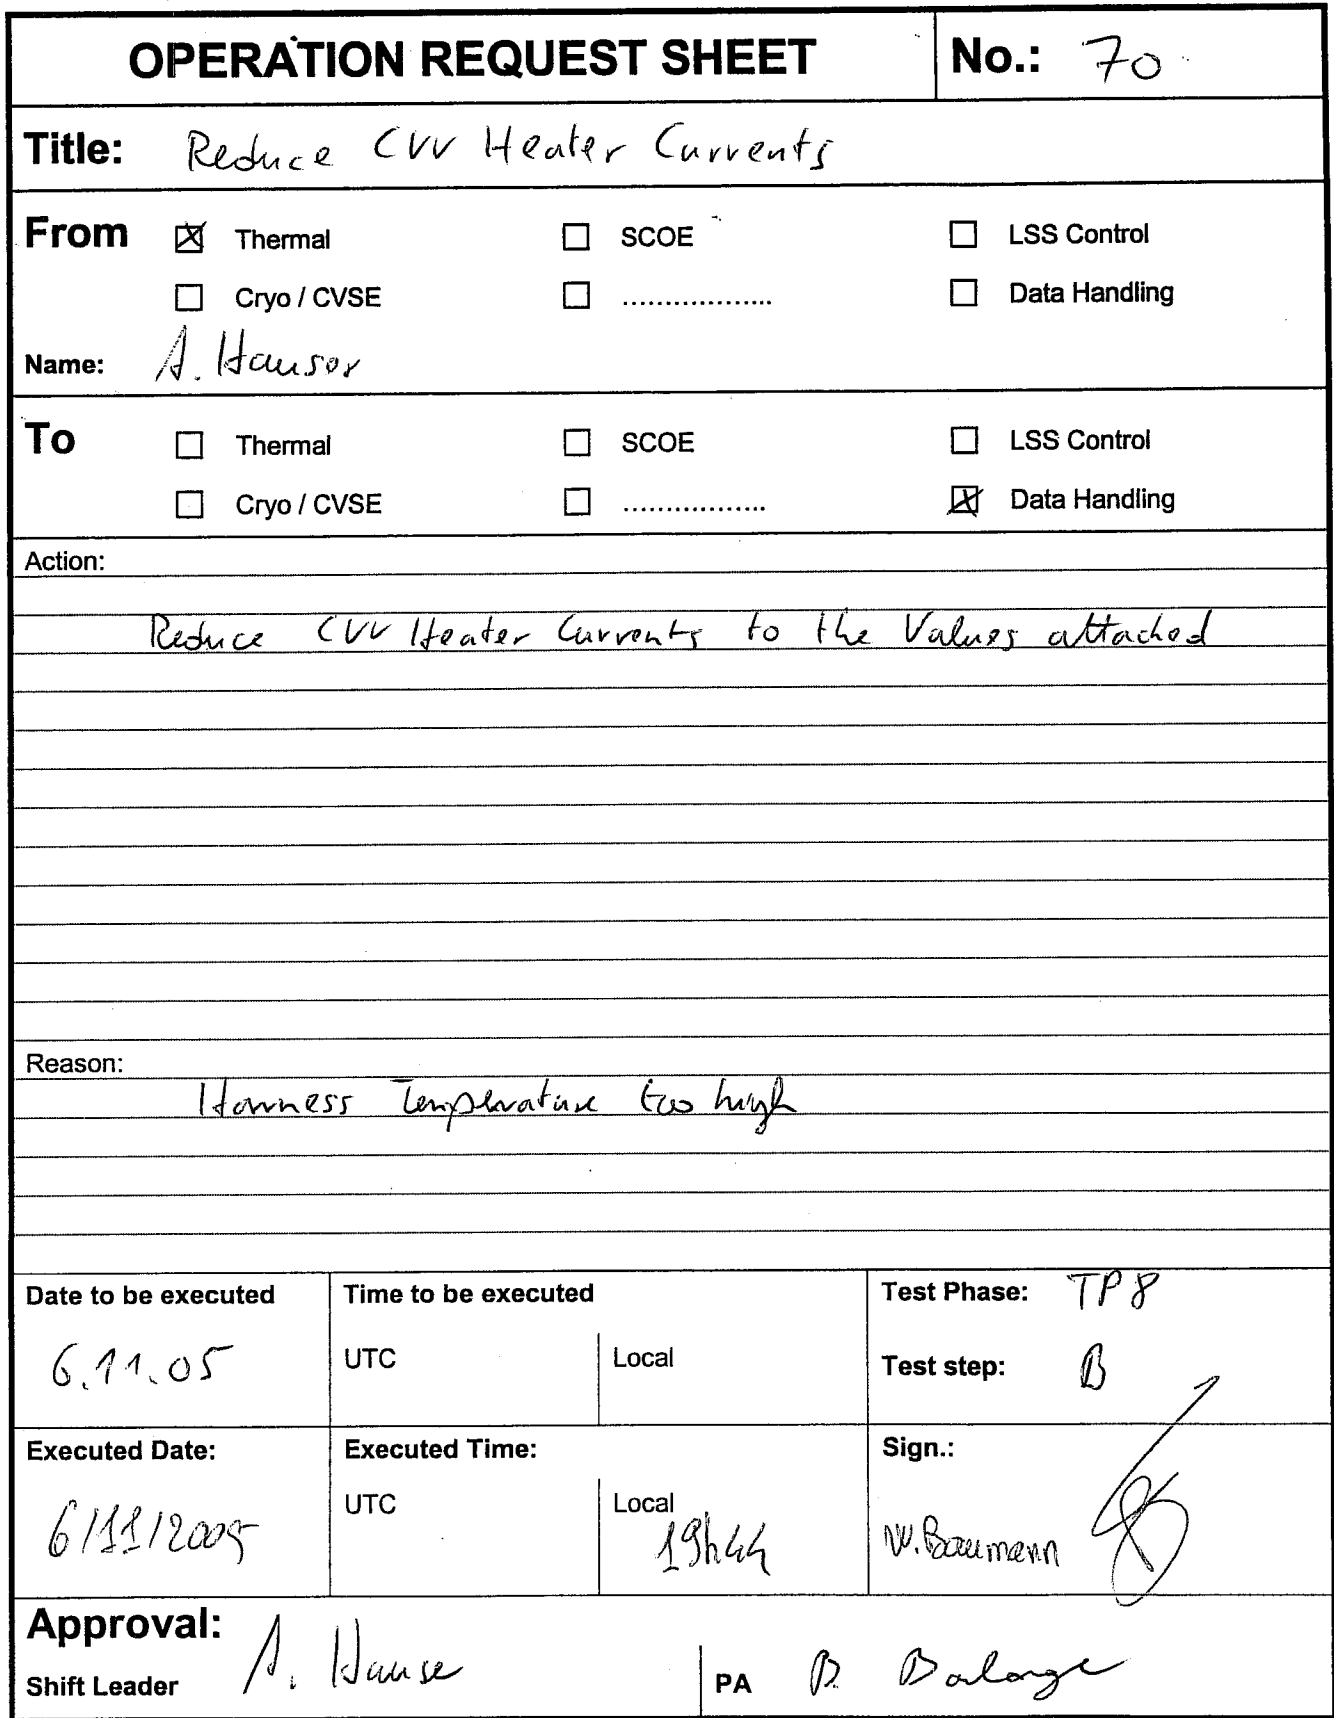 OPERATION REQUEST SHEET No.: 70
Title: Reduce CVV Heater Currents
From ☒ Thermal ☐ SCOE ☐ LSS Control
☐ Cryo / CVSE ☐ .................. ☐ Data Handling
Name: A. Hauser
To ☐ Thermal ☐ SCOE ☐ LSS Control
☐ Cryo / CVSE ☐ ................. ☒ Data Handling
Action:
Reduce CVV Heater Currents to the Values attached
Reason:
Harness Temperature too high
Date to be executed Time to be executed Test Phase: TP8
6.11.05 UTC Local Test step: B
Executed Date: Executed Time: Sign.:
6/11/2005 UTC Local 19h44 W. Baumann
Approval:
Shift Leader A. Hause PA B